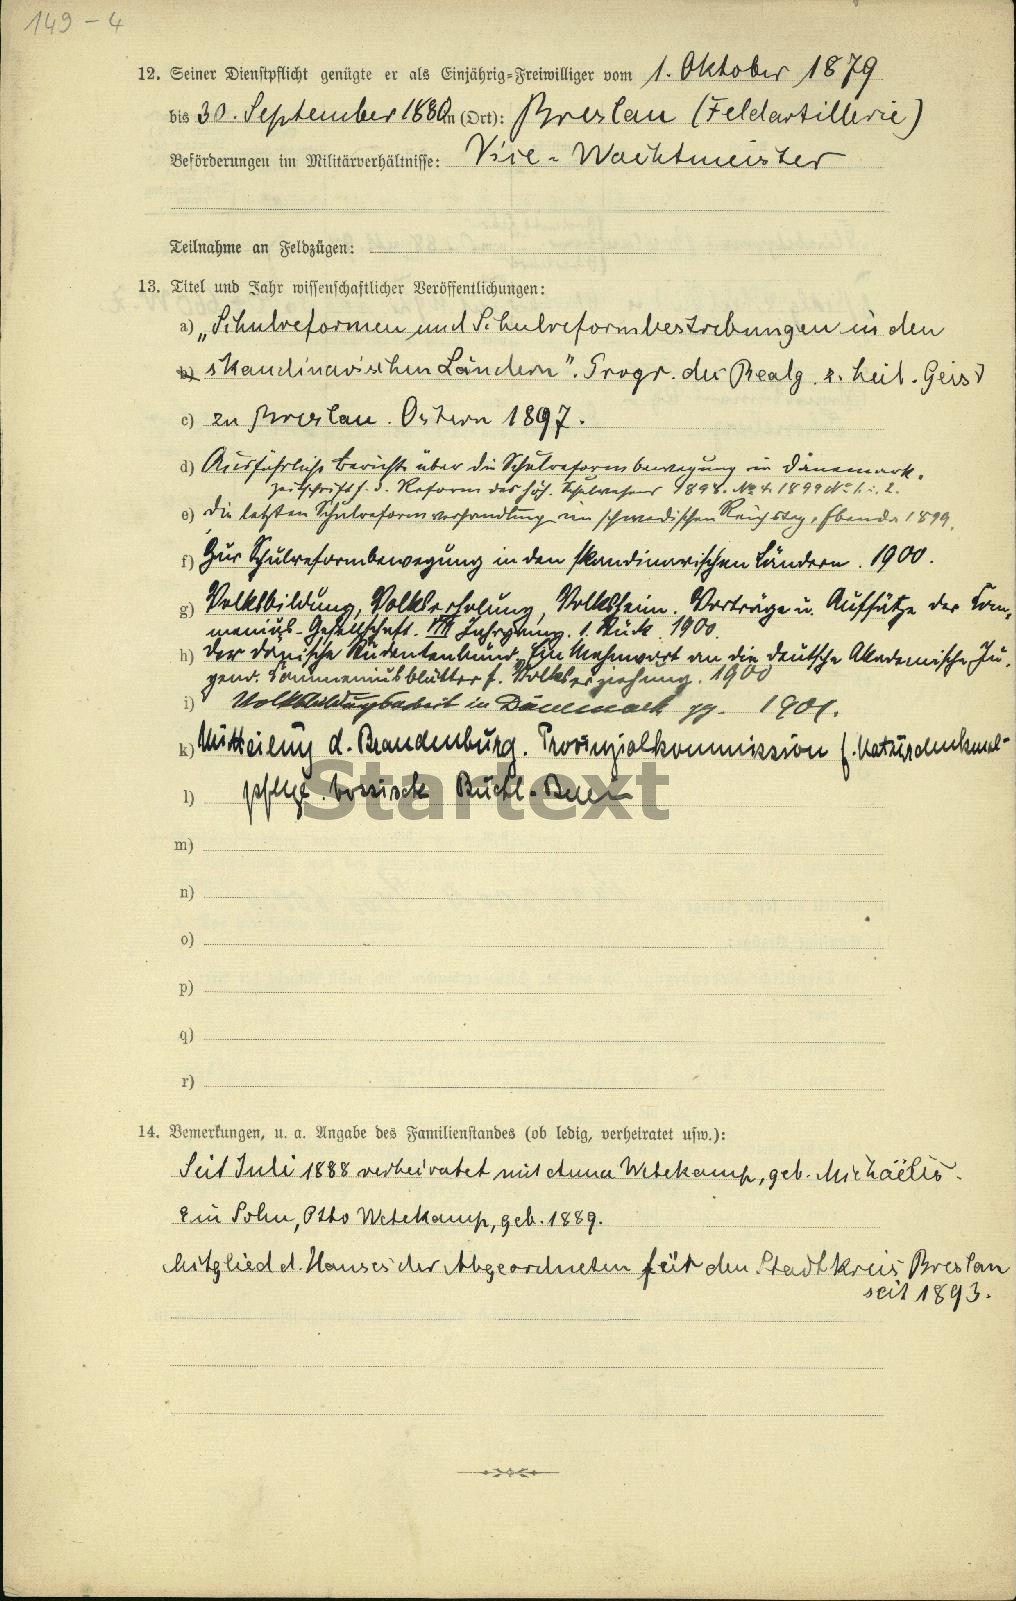 149 - 4
12. Seiner Dienstpflicht genügte er als Einjährig-Freiwilliger vom 1. Oktober 1879
bis 30. September 1880 in (Ort): Breslau (Feldartillerie)
Beförderungen im Militärverhältnisse: Vice-Wachtmeister
Teilnahme an Feldzügen:
13. Titel und Jahr wissenschaftlicher Veröffentlichungen:
a) „Schulreformen und Schulreformbestrebungen in den
b) skandinavischen Ländern". Progr. des Realg. z. heil. Geist
c) zu Breslau. Ostern 1897.
d) Ausführliche Berichte über die Schulreformbewegung in Dänemark.
Zeitschrift f. d. Reform der höh. Schulwesens 1898. No 4. 1899 No 1. 2.
e) Die letzten Schulreformverhandlung im schwedischen Reichstag, Ebenda 1899.
f) Zur Schulreformbewegung in den skandinavischen Ländern. 1900.
g) Volksbildung, Volkserholung, Volksheim. Vorträge u. Aufsätze der Com-
menius-Gesellschaft. VIII Jahrgang. 1. Stück. 1900.
h) Der dänische Studentenbund, Ein Mahnwort an die deutsche Akademische Ju-
gend. Commeniusblätter f. Volkserziehung. 1900
i) Volksbildungsarbeit in Dänemark 1901.
k) Mitteilung d. Brandenburg. Provinzialkommission f. Naturdenkmal-
l) pflege.
m)
n)
o)
p)
q)
r)
14. Bemerkungen, u. a. Angabe des Familienstandes (ob ledig, verheiratet usw.):
Seit Juli 1888 verheiratet mit Anna Wetekamp, geb. Michaëlis.
Ein Sohn, Otto Wetekamp, geb. 1889.
Mitglied d. Hauses der Abgeordneten für den Stadtkreis Breslau
seit 1893.
Startext